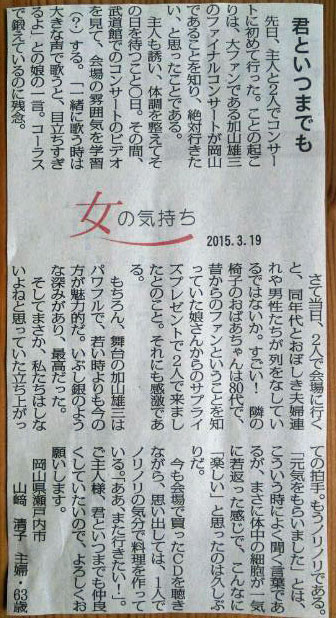 君といつまでも
先日、主人と2人でコンサー
トに初めて行った。ことの起こ
りは、大ファンである加山雄三
のファイナルコンサートが岡山
であることを知り、絶対行きた
い、と思ったことである。
主人も誘い、体調を整えてそ
の日を待つこと〇日。その間、
武道館でのコンサートのビデオ
を見て、会場の雰囲気を学習
(?)する。「一緒に歌う時は
大きな声で歌うと、目立ちすぎ
るよ」との娘の一言。コーラス
で鍛えているのに残念。
女の気持ち
2015.3.19
さて当日、2人で会場に行く
と、同年代とおぼしき夫婦連
れや男性たちが列をなしてい
るではないか。すごい! 隣の
椅子のおばあちゃんは80代で、
昔からのファンということを知
っていた娘さんからのサプライ
ズプレゼントで2人で来まし
たとのこと。それにも感激であ
る。
もちろん、舞台の加山雄三は
パワフルで、若い時よりも今の
方が魅力的だ。いぶし銀のよう
な深みがあり、最高だった。
そしてまさか、私たちはしな
いよねと思っていた立ち上がっ
ての拍手。もうノリノリである。
「元気をもらいました」とは、
こういう時によく聞く言葉であ
るが、まさに体中の細胞が一気
に若返った感じで、こんなに
「楽しい」と思ったのは久しぶ
りだ。
今も会場で買ったCDを聴き
ながら、思い出しては、1人で
ノリノリの気分で料理を作って
いる。「ああ、また行きたい!」。
ご主人様、君といつまでも仲良
くしていたいので、よろしくお
願いします。
岡山県瀬戸内市
山﨑 清子 主婦・63歳